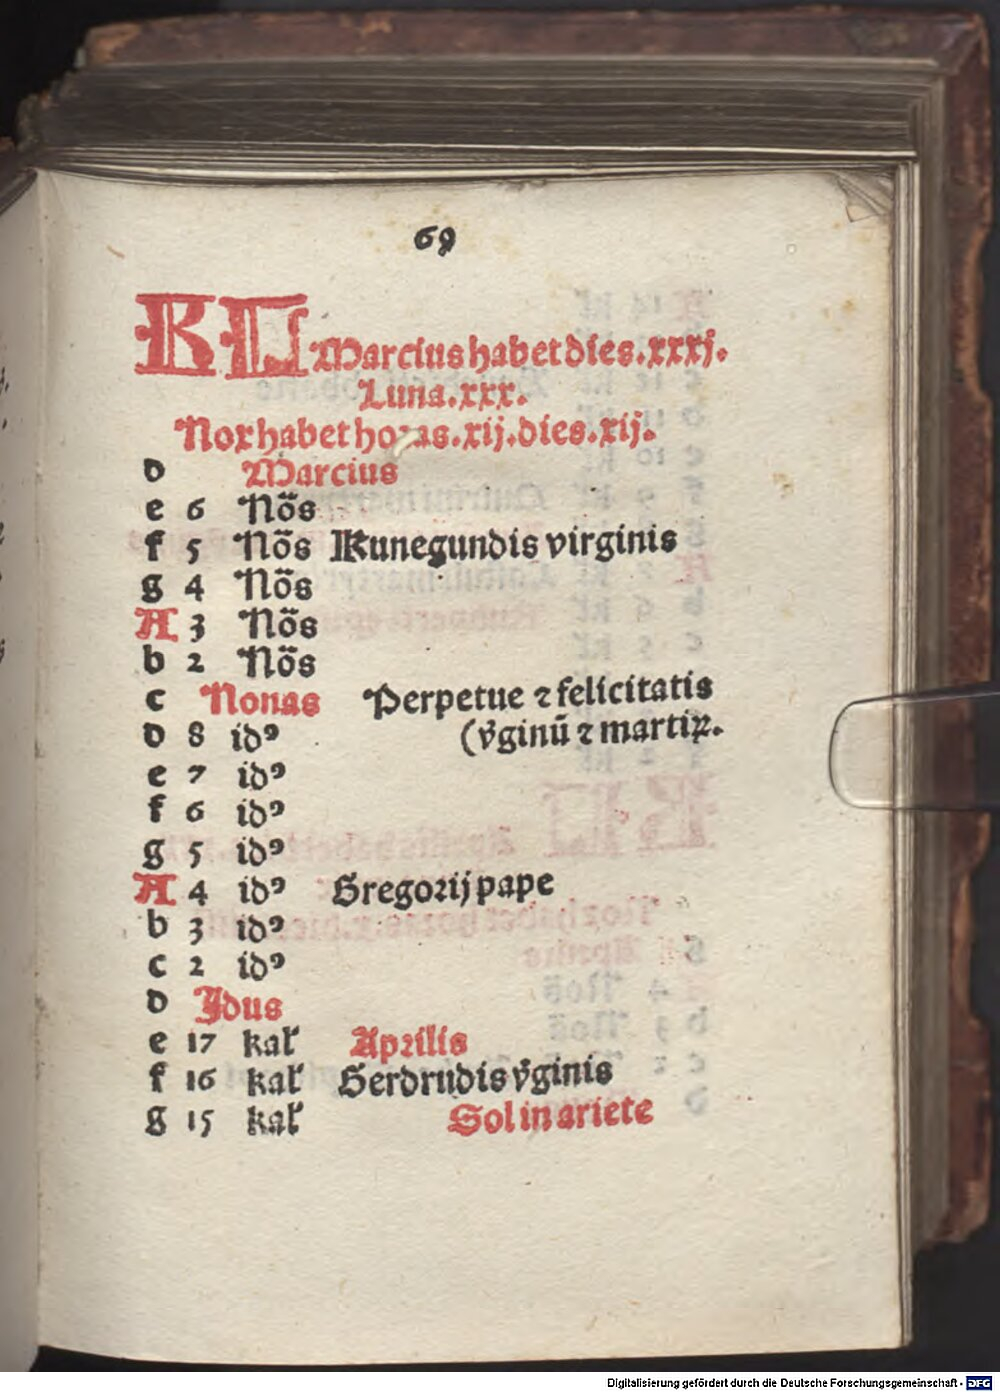 69
KL Marcius habet dies.xxxj.
Luna.xxx.
Nox habet horas.xij.dies.xij.
d Marcius
e 6 Nōs
f 5 Nōs Kunegundis virginis
g 4 Nōs
A 3 Nōs
b 2 Nōs
c Nonas Perpetue ⁊ felicitatis
d 8 idꝰ (v̄ginū ⁊ martiꝝ.
e 7 idꝰ
f 6 idꝰ
g 5 idꝰ
A 4 idꝰ Gregorij pape
b 3 idꝰ
c 2 idꝰ
d Idus
e 17 kal' Aprilis
f 16 kal' Gerdrudis v̄ginis
g 15 kal' Sol in ariete
Digitalisierung gefördert durch die Deutsche Forschungsgemeinschaft - DFG